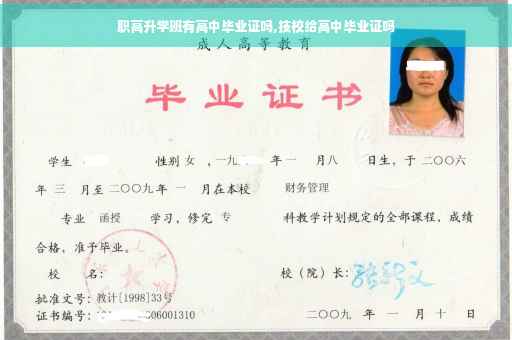 职高升学班有高中毕业证吗,技校给高中毕业证吗
成人高等教育
毕业证书
学生 性别 女 ,一九 年 一 月 八 日生,于 二〇〇六
年 三 月至 二〇〇九 年 一 月在本校 财务管理
专业 函授 学习,修完 专 科教学计划规定的全部课程,成绩
合格,准予毕业。
校 名: 校(院)长:
批准文号:教计[1998]33号
证书编号: 06001310 二〇〇九 年 一 月 十 日